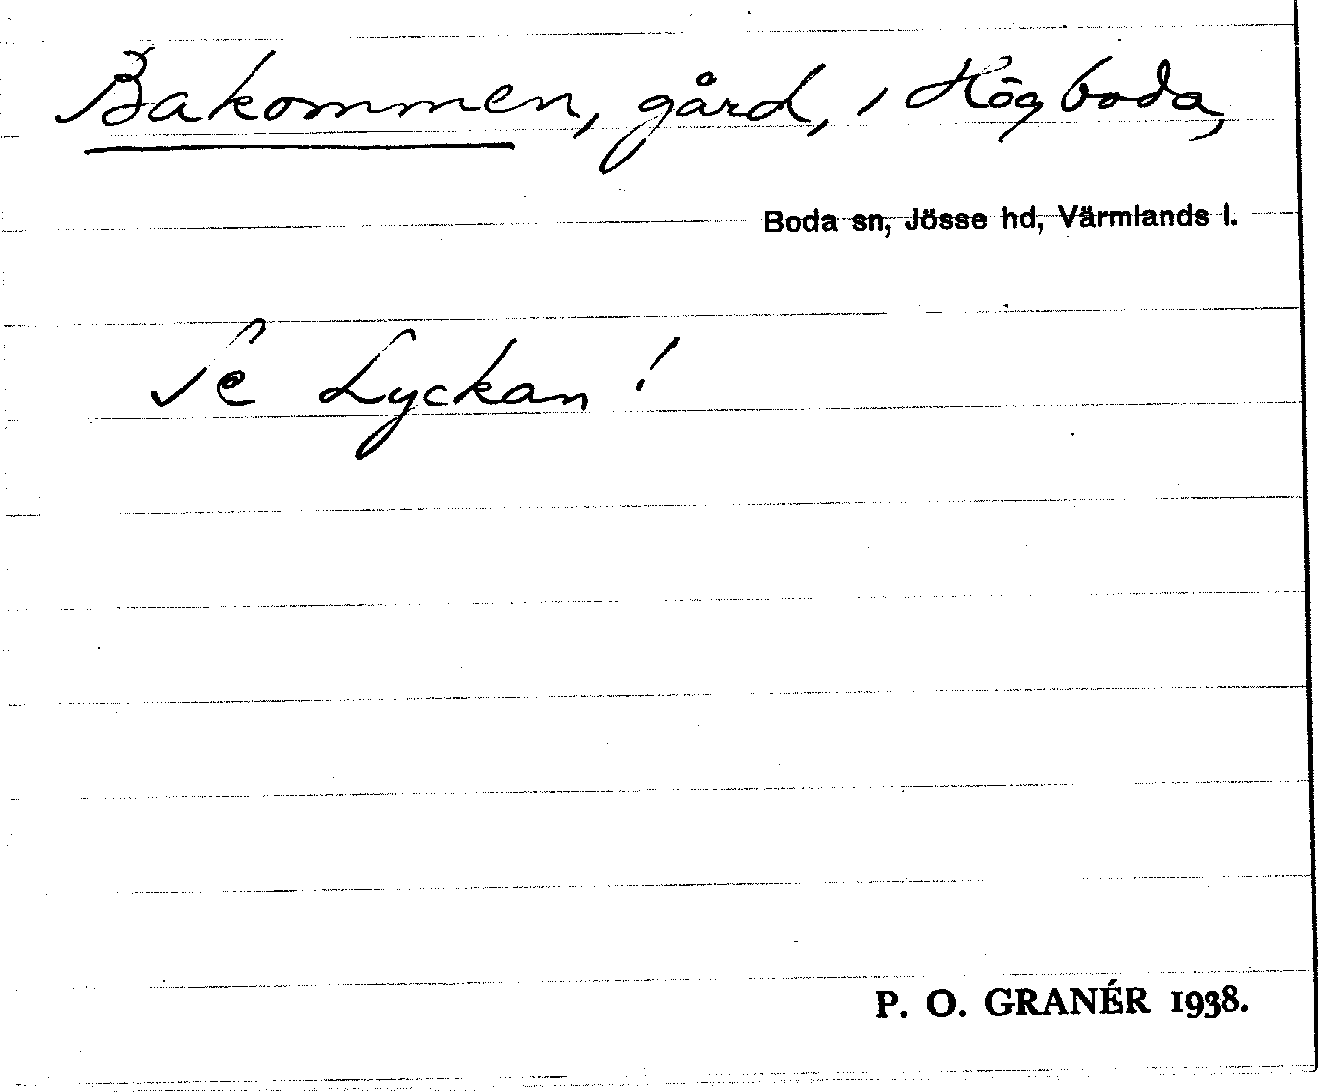 Bakommen, gård, i Högboda,
Boda sn, Jösse hd, Värmlands l.
Se Lyckan!
P. O. GRANÉR 1938.